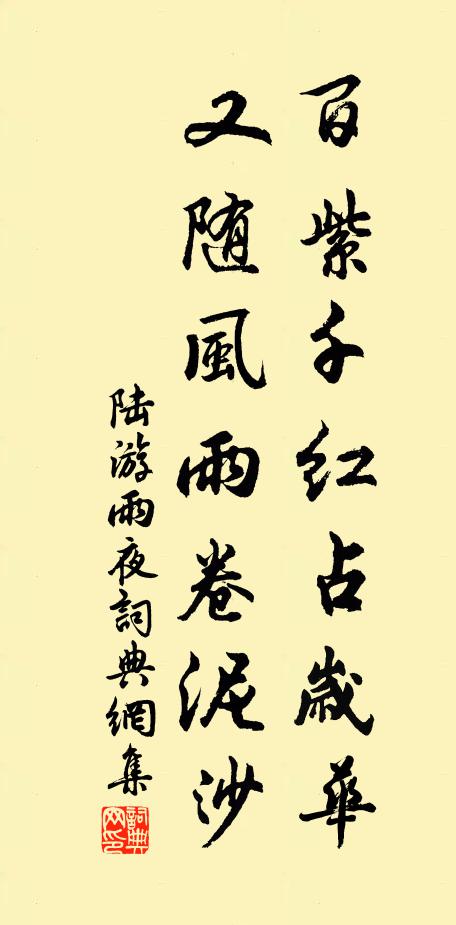 百紫千红占歲華
又随風雨卷泥沙
陆游雨夜詞典網集
詞典網印